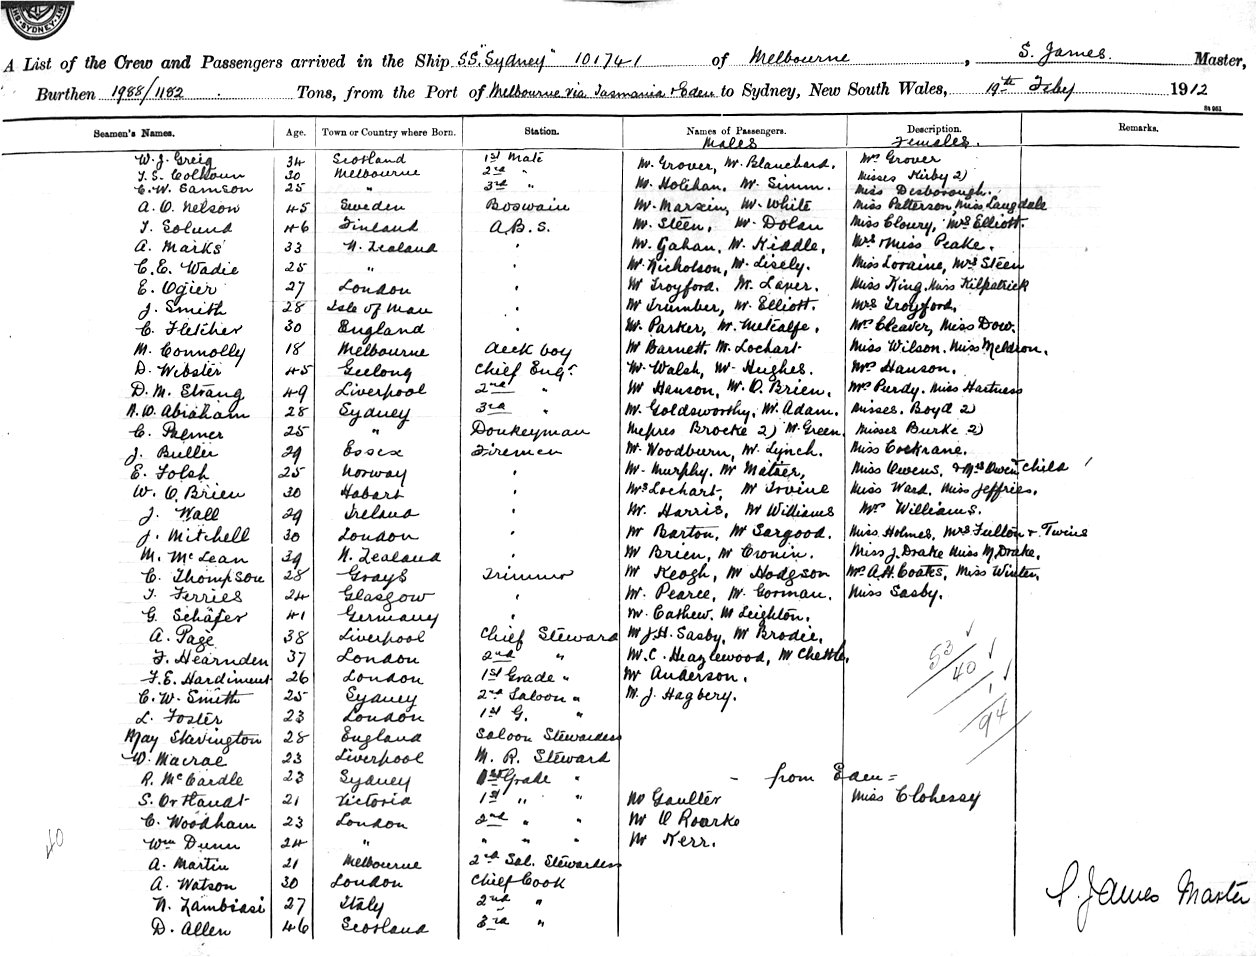 SYDNEY
A List of the Crew and Passengers arrived in the Ship S.S. "Sydney" 101741 of Melbourne, S. James. Master,
Burthen 1988/1182 Tons, from the Port of Melbourne via Tasmania & Eden to Sydney, New South Wales, 19th Feby 1912
St 961
Seamen's Names. Age. Town or Country where Born. Station. Names of Passengers. Description. Remarks.
Males Females.
W. J. Greig 34 Scotland 1st Mate Mr Grover, Mr Blanchard. Mrs Grover
T. S. Colhoun 30 Melbourne 2nd " Misses Kirby 2)
C. W. Samson 25 " 3rd " Mr Holihan. Mr Simm. Miss Desborough.
A. O. Nelson 45 Sweden Boswain Mr Marxin, Mr White Miss Patterson, Miss Langdale
T. Solund 46 Finland A.B.S. Mr Steen, Mr Dolan Miss Cloury, Mrs Elliott.
A. Marks 33 N. Zealand " Mr Gahan, Mr Kiddle, Mrs & Miss Peake.
C. E. Wadie 25 " " Mr Nicholson, Mr Lisely. Miss Loraine, Mrs Steen
E. Ogier 27 London " Mr Troyford. Mr Laver. Miss King. Miss Kilpatrick
J. Smith 28 Isle of Man " Mr Trumber, Mr Elliott. Mrs Troyford,
C. Fletcher 30 England " Mr Parker, Mr Metcalfe. Mrs Cleaver, Miss Dow.
M. Connolly 18 Melbourne deck boy Mr Barnett. Mr Lochart Miss Wilson. Miss Meldron.
D. Webster 45 Geelong Chief Engr Mr Walsh, Mr Hughes. Mrs Hanson.
D. M. Strang 49 Liverpool 2nd " Mr Hanson, Mr O'Brien. Mrs Purdy. Miss Hartness
A. W. Abraham 28 Sydney 3rd " Mr Goldsworthy, Mr Adam. Misses. Boyd 2)
C. Palmer 25 " Donkeyman Messrs Brocke 2) Mr Green. Misses Burke 2)
J. Buller 29 Essex Firemen Mr Woodburn, Mr Lynch. Miss Cockrane.
E. Folsh 25 Norway " Mr Murphy. Mr Matzer, Miss Owens, & Mrs Owen, child
W. O'Brien 30 Hobart " Mrs Lochart, Mr Irvine Miss Ward. Miss Jeffries.
J. Wall 29 Ireland " Mr Harris, Mr Williams Mrs Williams.
J. Mitchell 30 London " Mr Barton, Mr Sargood. Miss Holmes, Mrs Fulton & Twins
M. McLean 39 N. Zealand " Mr Brien, Mr Cronin. Miss J. Drake Miss M. Drake,
C. Thompson 28 Grays Trimmer Mr Keogh, Mr Hodgson Mrs A. H. Coats, Miss Winter,
T. Ferries 24 Glasgow " Mr Pearce, Mr Gorman. Miss Sasby.
G. Schäfer 41 Germany " Mr Cathew. Mr Leighton.
A. Page 38 Liverpool Chief Steward Mr J. H. Sasby, Mr Brodie,
F. Hearnden 37 London 2nd " Mr C. Heazlewood, Mr Chettle, 53
F. E. Hardiment 26 London 1st Grade " Mr Anderson. 40
C. W. Smith 25 Sydney 2nd Saloon " Mr J. Hagbery. 1
L. Foster 23 London 1st G. " 94
May Skevington 28 England Saloon Stewardess
D. Macrae 23 Liverpool M. R. Steward
R. McCardle 23 Sydney 1st Grade " - from Eden =
S. Ortlandt 21 Victoria 1st " " Mr Gaulter Miss Clohessy
C. Woodham 23 London 2nd " " Mr O'Roarke
Wm Dunn 24 " " " " Mr Kerr.
40
A. Martin 21 Melbourne 2nd Sal. Stewardess
A. Watson 30 London Chief Cook
N. Zambiasi 27 Italy 2nd " S. James Master
D. Allen 46 Scotland 3rd "